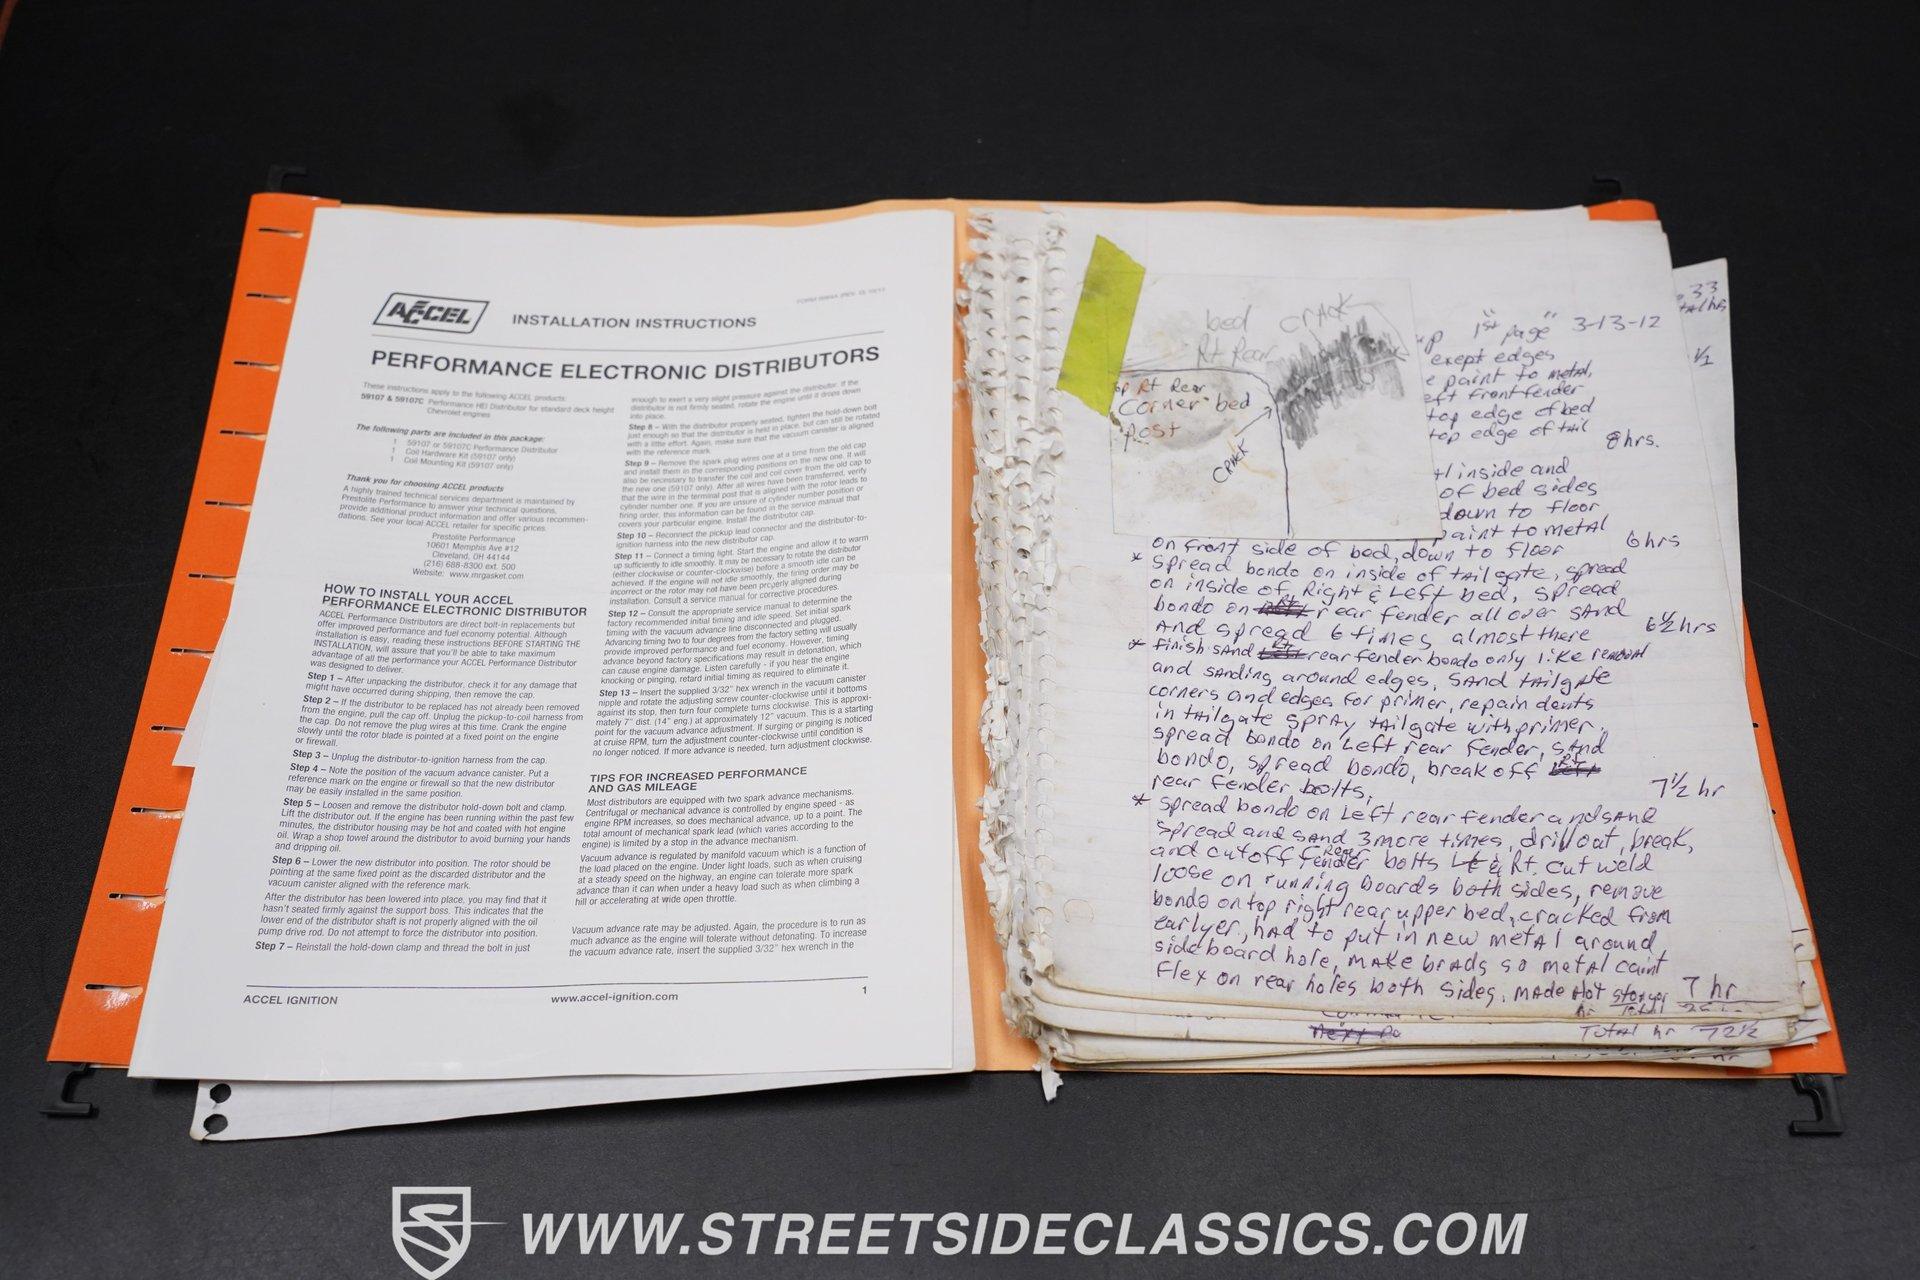 ACCEL
INSTALLATION INSTRUCTIONS
PERFORMANCE ELECTRONIC DISTRIBUTORS
These instructions apply to the following ACCEL products:
59107 & 59107C Performance HEI Distributor for standard deck height
Chevrolet engines
The following parts are included in this package:
1 59107 or 59107C Performance Distributor
1 Coil Hardware Kit (59107 only)
1 Coil Mounting Kit (59107 only)
Thank you for choosing ACCEL products
A highly trained technical services department is maintained by
Prestolite Performance to answer your technical questions,
provide additional product information and offer various recommen-
dations. See your local ACCEL retailer for specific prices.
Prestolite Performance
10601 Memphis Ave #12
Cleveland, OH 44144
(216) 688-8300 ext. 500
Website: www.mrgasket.com
HOW TO INSTALL YOUR ACCEL
PERFORMANCE ELECTRONIC DISTRIBUTOR
ACCEL Performance Distributors are direct bolt-in replacements but
offer improved performance and fuel economy potential. Although
installation is easy, reading these instructions BEFORE STARTING THE
INSTALLATION, will assure that you'll be able to take maximum
advantage of all the performance your ACCEL Performance Distributor
was designed to deliver.
Step 1 – After unpacking the distributor, check it for any damage that
might have occurred during shipping, then remove the cap.
Step 2 – If the distributor to be replaced has not already been removed
from the engine, pull the cap off. Unplug the pickup-to-coil harness from
the cap. Do not remove the plug wires at this time. Crank the engine
slowly until the rotor blade is pointed at a fixed point on the engine
or firewall.
Step 3 – Unplug the distributor-to-ignition harness from the cap.
Step 4 – Note the position of the vacuum advance canister. Put a
reference mark on the engine or firewall so that the new distributor
may be easily installed in the same position.
Step 5 – Loosen and remove the distributor hold-down bolt and clamp.
Lift the distributor out. If the engine has been running within the past few
minutes, the distributor housing may be hot and coated with hot engine
oil. Wrap a shop towel around the distributor to avoid burning your hands
and dripping oil.
Step 6 – Lower the new distributor into position. The rotor should be
pointing at the same fixed point as the discarded distributor and the
vacuum canister aligned with the reference mark.
After the distributor has been lowered into place, you may find that it
hasn't seated firmly against the support boss. This indicates that the
lower end of the distributor shaft is not properly aligned with the oil
pump drive rod. Do not attempt to force the distributor into position.
Step 7 – Reinstall the hold-down clamp and thread the bolt in just
enough to exert a very slight pressure against the distributor. If the
distributor is not firmly seated, rotate the engine until it drops down
into place.
Step 8 – With the distributor properly seated, tighten the hold-down bolt
just enough so that the distributor is held in place, but can still be rotated
with a little effort. Again, make sure that the vacuum canister is aligned
with the reference mark.
Step 9 – Remove the spark plug wires one at a time from the old cap
and install them in the corresponding positions on the new one. It will
also be necessary to transfer the coil and coil cover from the old cap to
the new one (59107 only). After all wires have been transferred, verify
that the wire in the terminal post that is aligned with the rotor leads to
cylinder number one. If you are unsure of cylinder number position or
firing order, this information can be found in the service manual that
covers your particular engine. Install the distributor cap.
Step 10 – Reconnect the pickup lead connector and the distributor-to-
ignition harness into the new distributor cap.
Step 11 – Connect a timing light. Start the engine and allow it to warm
up sufficiently to idle smoothly. It may be necessary to rotate the distributor
(either clockwise or counter-clockwise) before a smooth idle can be
achieved. If the engine will not idle smoothly, the firing order may be
incorrect or the rotor may not have been properly aligned during
installation. Consult a service manual for corrective procedures.
Step 12 – Consult the appropriate service manual to determine the
factory recommended initial timing and idle speed. Set initial spark
timing with the vacuum advance line disconnected and plugged.
Advancing timing two to four degrees from the factory setting will usually
provide improved performance and fuel economy. However, timing
advance beyond factory specifications may result in detonation, which
can cause engine damage. Listen carefully - if you hear the engine
knocking or pinging, retard initial timing as required to eliminate it.
Step 13 – Insert the supplied 3/32" hex wrench in the vacuum canister
nipple and rotate the adjusting screw counter-clockwise until it bottoms
against its stop, then turn four complete turns clockwise. This is approxi-
mately 7° dist. (14° eng.) at approximately 12" vacuum. This is a starting
point for the vacuum advance adjustment. If surging or pinging is noticed
at cruise RPM, turn the adjustment counter-clockwise until condition is
no longer noticed. If more advance is needed, turn adjustment clockwise.
TIPS FOR INCREASED PERFORMANCE
AND GAS MILEAGE
Most distributors are equipped with two spark advance mechanisms.
Centrifugal or mechanical advance is controlled by engine speed - as
engine RPM increases, so does mechanical advance, up to a point. The
total amount of mechanical spark lead (which varies according to the
engine) is limited by a stop in the advance mechanism.
Vacuum advance is regulated by manifold vacuum which is a function of
the load placed on the engine. Under light loads, such as when cruising
at a steady speed on the highway, an engine can tolerate more spark
advance than it can when under a heavy load such as when climbing a
hill or accelerating at wide open throttle.
Vacuum advance rate may be adjusted. Again, the procedure is to run as
much advance as the engine will tolerate without detonating. To increase
the vacuum advance rate, insert the supplied 3/32" hex wrench in the
ACCEL IGNITION
www.accel-ignition.com
1
bed crack
Rt Rear
op Rt Rear
Corner bed
post
crack
33
1/2
up 1st page" 3-13-12
exept edges
e paint to metal,
eft Front fender
top edge of bed
top edge of tail
8 hrs.
inside and
of bed sides
down to floor
paint to metal
on front side of bed, down to floor 6 hrs
* Spread bondo on inside of tailgate, spread
on inside of Right & Left bed, spread
bondo on Rt rear fender all over sand
and spread 6 times almost there 6½ hrs
* finish sand Rt rear fender bondo only like
and sanding around edges, sand tailgate
corners and edges for primer, repain dents
in tailgate spray tailgate with primer,
spread bondo on Left rear fender, sand
bondo, spread bondo, break off Rt
rear fender bolts, 7½ hr
* spread bondo on Left rear fender and sand
spread and sand 3 more times, drill out, break,
and cut off Rear fender bolts Lt & Rt. cut weld
loose on running boards both sides, remove
bondo on top right rear upper bed, cracked from
earlyer, had to put in new metal around
sideboard hole, make brads so metal caint
flex on rear holes both sides. made 7 hr
Total hr 72½
WWW.STREETSIDECLASSICS.COM